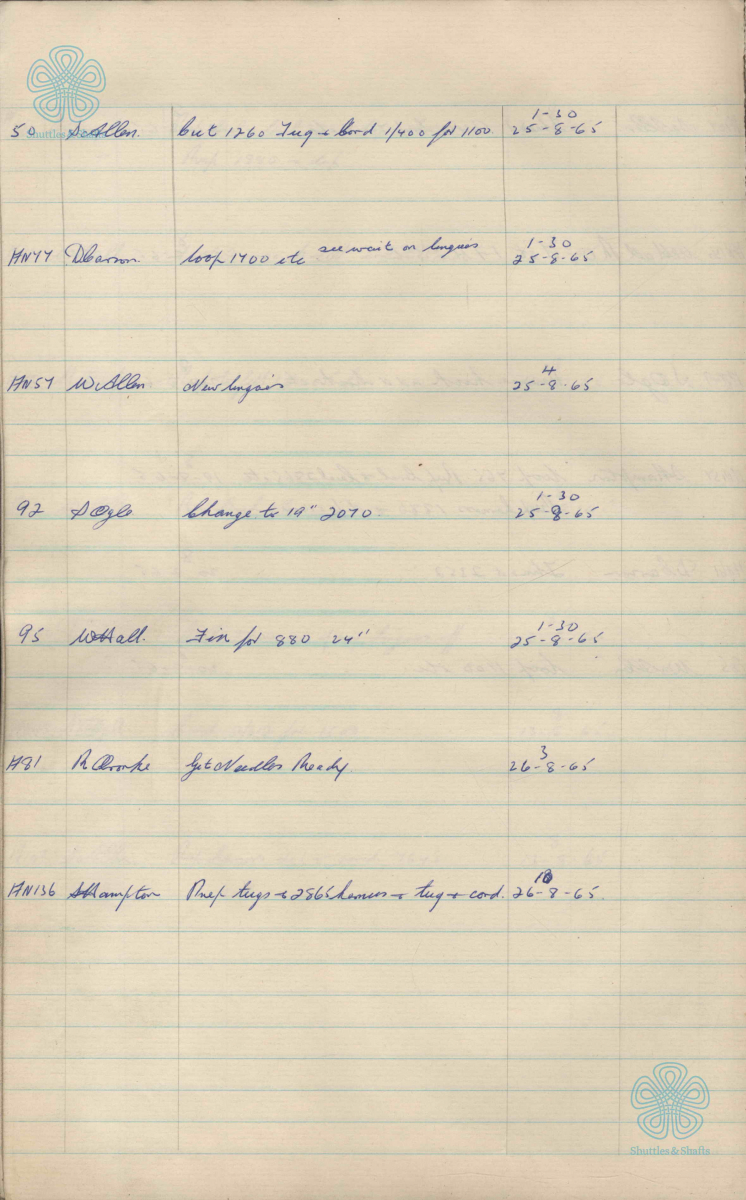 1-30
50 S Allen. Cut 1260 Tug + Cord 1/400 for 1100. 25-8-65
see wait on lingoes 1-30
HN77 D Carson. loop 1700 etc 25-8-65
4
HN57 W Allen New lingoes 25-8-65
1-30
92 S Ogle Change to 19" 2070 25-8-65
1-30
95 W Hall. Fix for 880 24" 25-8-65
3
H81 R Get Needles Ready 26-8-65
HN136 Hampton Prep tugs + 2865 + tug + cord. 26-8-65.
Shuttles & Shafts